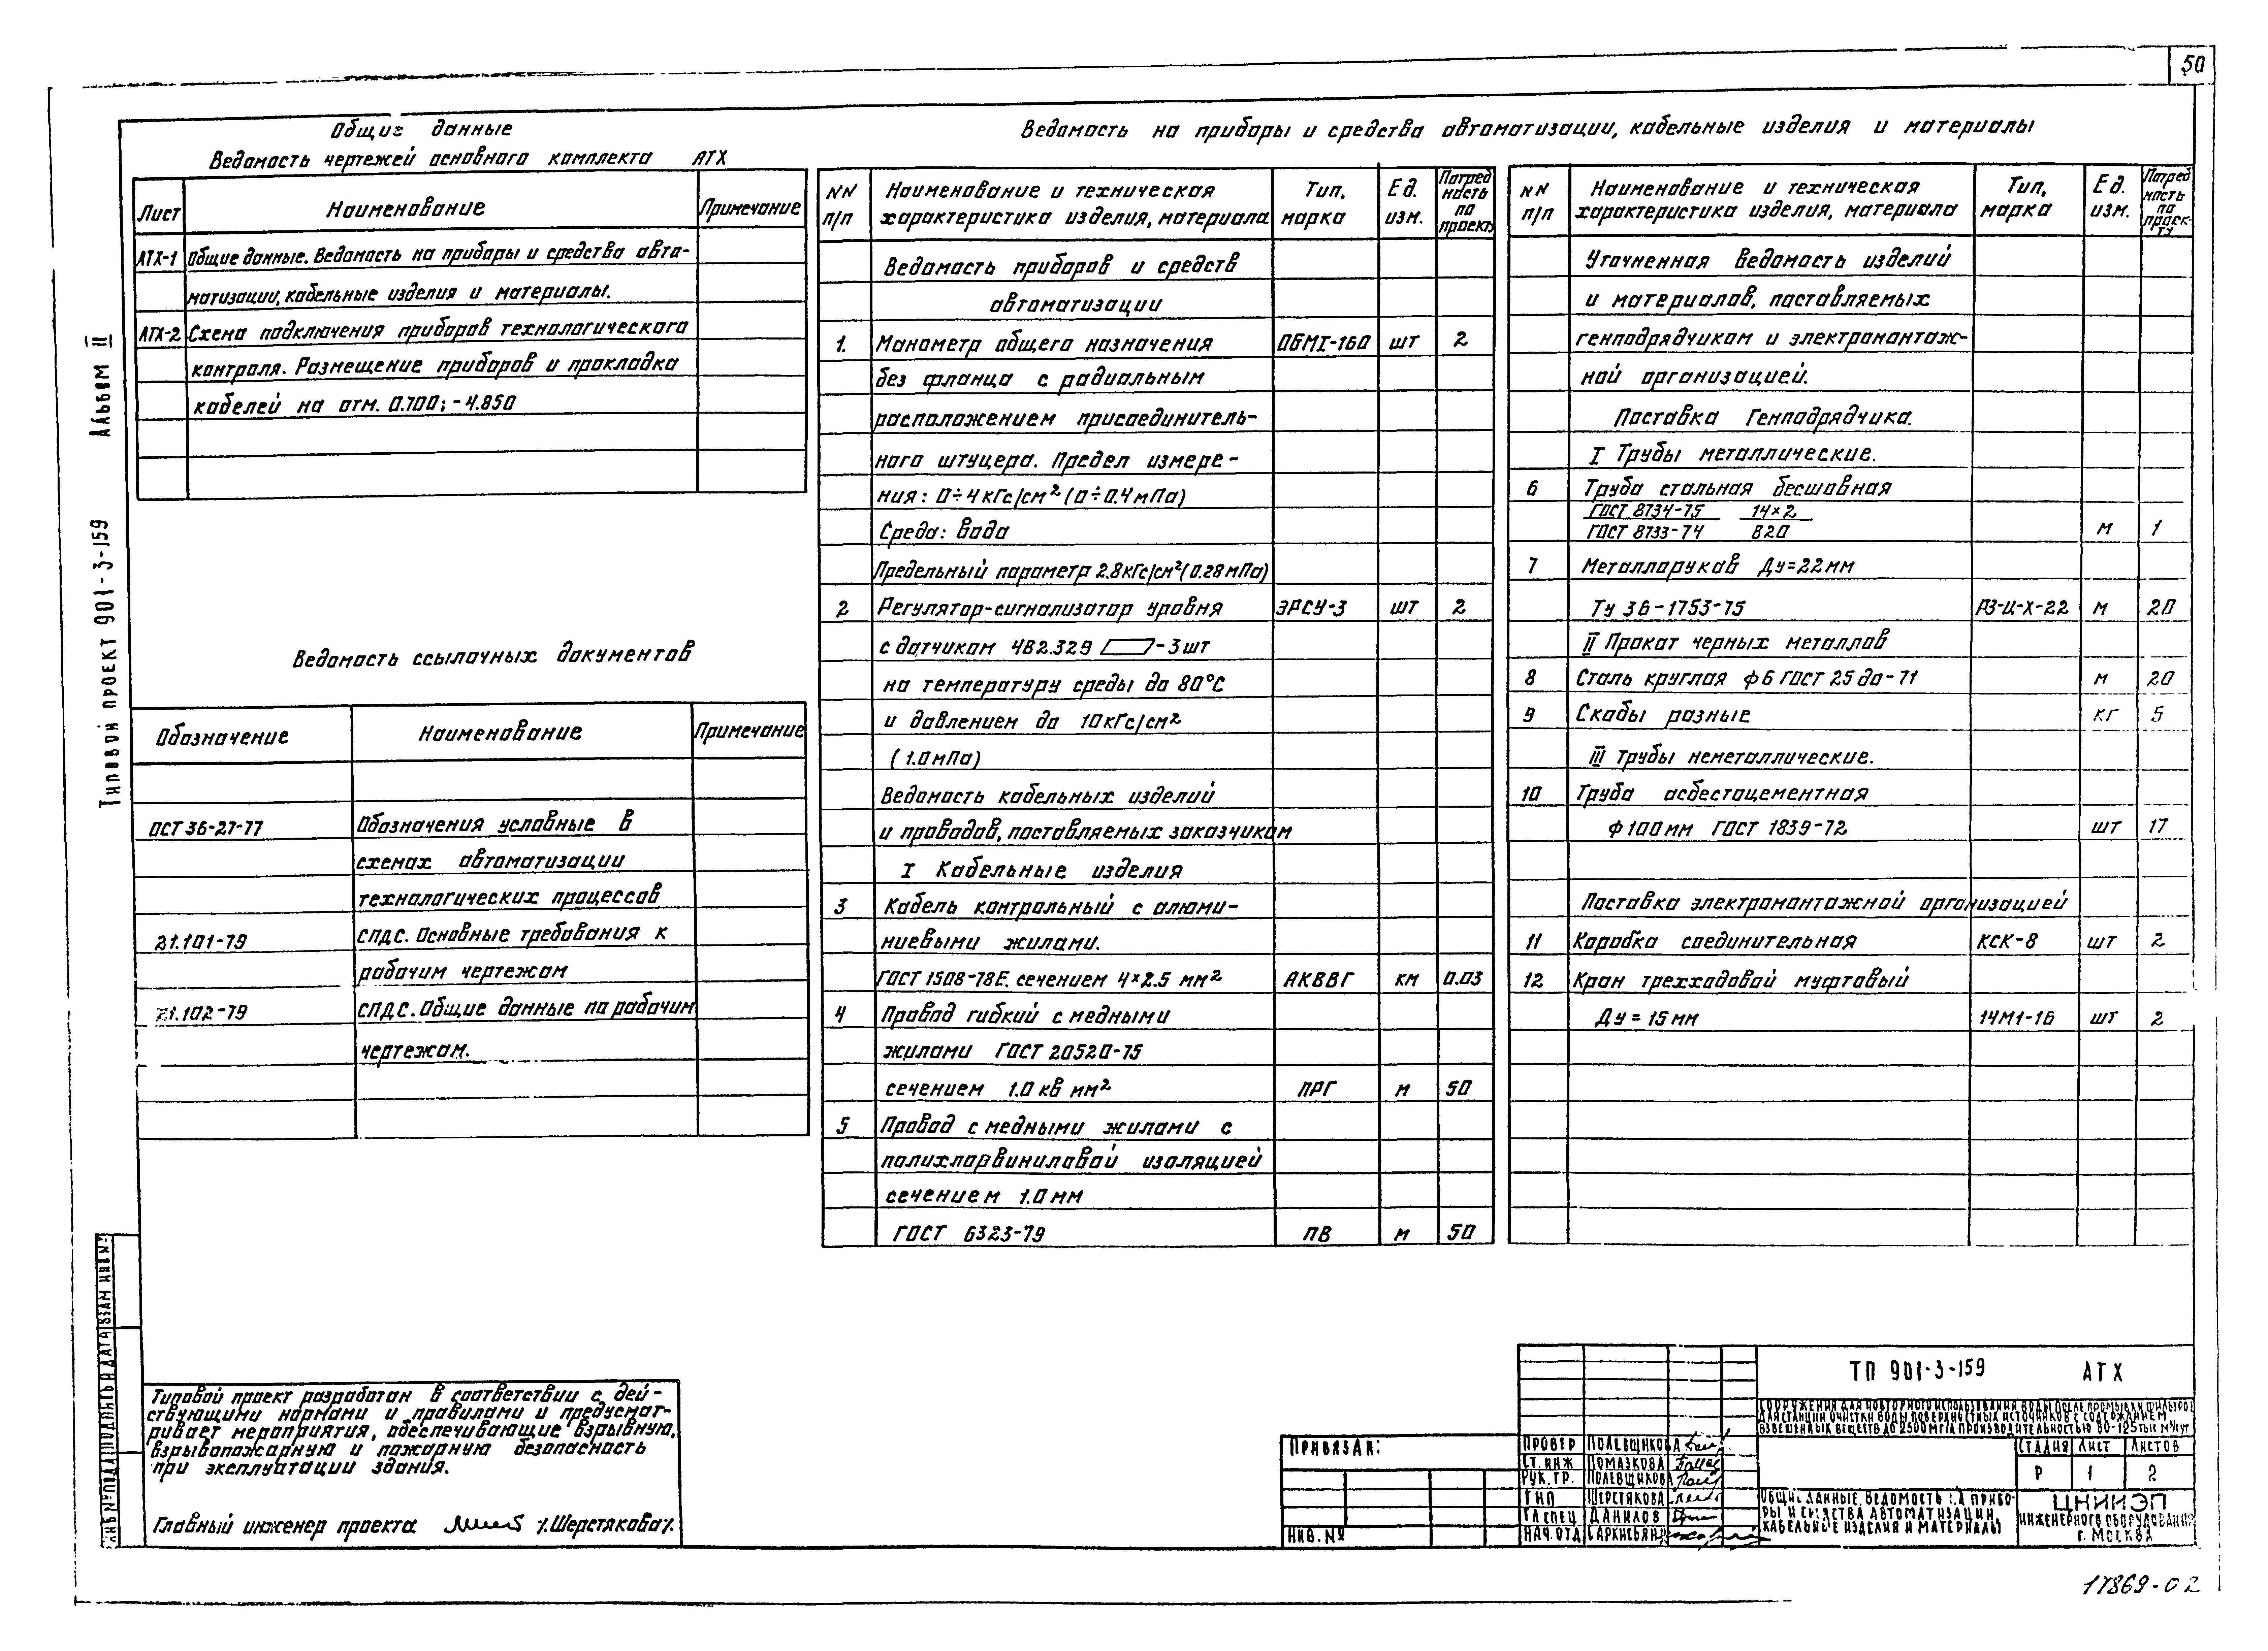 50
Общие данные
Ведомость чертежей основного комплекта АТХ
Лист Наименование Примечание
АТХ-1 Общие данные. Ведомость на приборы и средства авто-
матизации, кабельные изделия и материалы.
АТХ-2 Схема подключения приборов технологического
контроля. Размещение приборов и прокладка
кабелей на отм. 0.700; -4.850
Ведомость ссылочных документов
Обозначение Наименование Примечание
ОСТ 36-27-77 Обозначения условные в
схемах автоматизации
технологических процессов
21.101-79 СПДС. Основные требования к
рабочим чертежам
21.102-79 СПДС. Общие данные по рабочим
чертежам.
Ведомость на приборы и средства автоматизации, кабельные изделия и материалы
NN Наименование и техническая Тип, Ед. Потреб
п/п характеристика изделия, материала марка изм. ность
по
проекту
Ведомость приборов и средств
автоматизации
1. Манометр общего назначения ОБМГ-160 шт 2
без фланца с радиальным
расположением присоединитель-
ного штуцера. Предел измере-
ния: 0÷4 кГс/см² (0÷0.4 мПа)
Среда: вода
Предельный параметр 2.8 кГс/см² (0.28 мПа)
2 Регулятор-сигнализатор уровня ЭРСУ-3 шт 2
с датчиком 4В2.329 -3 шт
на температуру среды до 80°С
и давлением до 10 кГс/см²
(1.0 мПа)
Ведомость кабельных изделий
и проводов, поставляемых заказчиком
I Кабельные изделия
3 Кабель контрольный с алюми-
ниевыми жилами.
ГОСТ 1508-78Е. сечением 4×2.5 мм² АКВВГ км 0.03
4 Провод гибкий с медными
жилами ГОСТ 20520-75
сечением 1.0 кв мм² ПРГ м 50
5 Провод с медными жилами с
полихлорвиниловой изоляцией
сечением 1.0 мм
ГОСТ 6323-79 ПВ м 50
NN Наименование и техническая Тип, Ед. Потреб
п/п характеристика изделия, материала марка изм. ность
по
проек-
ту
Уточненная ведомость изделий
и материалов, поставляемых
генподрядчиком и электромонтаж-
ной организацией.
Поставка Генподрядчика.
I Трубы металлические.
6 Труба стальная бесшовная
ГОСТ 8734-75 14×2
ГОСТ 8733-74 В20 м 1
7 Металлорукав Ду=22мм
Ту 36-1753-75 РЗ-Ц-Х-22 м 20
II Прокат черных металлов
8 Сталь круглая ф6 ГОСТ 25до-71 м 20
9 Скобы разные кг 5
III Трубы неметаллические.
10 Труба асбестоцементная
ф100мм ГОСТ 1839-72 шт 17
Поставка электромонтажной организацией
11 Коробка соединительная КСК-8 шт 2
12 Кран трехходовой муфтовый
Ду = 15 мм 14М1-16 шт 2
Альбом II
Типовой проект 901-3-159
ИНВ № ПОДЛ ПОДПИСЬ И ДАТА ВЗАМ ИНВ №
Типовой проект разработан в соответствии с дей-
ствующими нормами и правилами и предусмат-
ривает мероприятия, обеспечивающие взрывную,
взрывопожарную и пожарную безопасность
при эксплуатации здания.
Главный инженер проекта /Шерстякова/.
ПРИВЯЗАН:
ИНВ. №
ПРОВЕР ПОЛЕВЩИКОВА
СТ. ИНЖ ПОМАЗКОВА
РУК. ГР. ПОЛЕВЩИКОВА
ГИП ШЕРСТЯКОВА
ГЛ СПЕЦ ДАНИЛОВ
НАЧ. ОТД САРКИСЬЯН
ТП 901-3-159 АТХ
СООРУЖЕНИЯ ДЛЯ ПОВТОРНОГО ИСПОЛЬЗОВАНИЯ ВОДЫ ПОСЛЕ ПРОМЫВКИ ФИЛЬТРОВ
ДЛЯ СТАНЦИИ ОЧИСТКИ ВОДЫ ПОВЕРХНОСТНЫХ ИСТОЧНИКОВ С СОДЕРЖАНИЕМ
ВЗВЕШЕННЫХ ВЕЩЕСТВ ДО 2500 МГ/Л ПРОИЗВОДИТЕЛЬНОСТЬЮ 80-125 тыс м³/сут
СТАДИЯ ЛИСТ ЛИСТОВ
Р 1 2
ОБЩИЕ ДАННЫЕ. ВЕДОМОСТЬ НА ПРИБО-
РЫ И СРЕДСТВА АВТОМАТИЗАЦИИ,
КАБЕЛЬНЫЕ ИЗДЕЛИЯ И МАТЕРИАЛЫ
ЦНИИЭП
ИНЖЕНЕРНОГО ОБОРУДОВАНИЯ
г. МОСКВА
17869-02